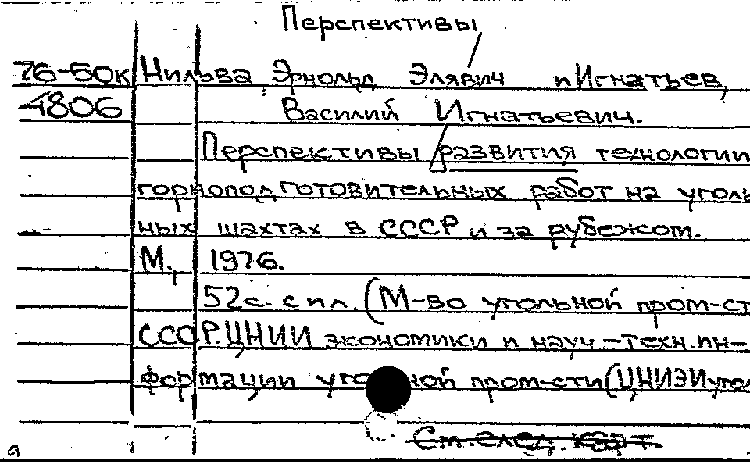 Перспективы
76-60к Нильва, Эрнольд Элявич и Игнатьев,
4806 Василий Игнатьевич.
Перспективы развития технологии
горноподготовительных работ на уголь
ных шахтах в СССР и за рубежом.
М., 1976.
52с. с ил. (М-во угольной пром-ст
СССР. ЦНИИ экономики и науч.-техн. ин-
формации угольной пром-сти (ЦНИЭИуголь
См. след. карт.